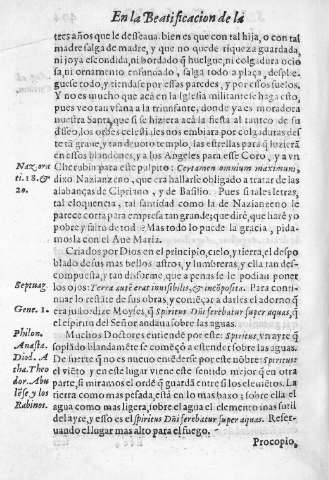 En la Beatificacion de la
tres años que le desseaua. bien es que con tal hija, o con tal
madre salga de madre, y que no quede riqueza guardada,
ni joya escondida, ni bordado q̃ huelgue, ni colgadura ocio
sa, ni ornamento enfundado, salga todo a plaça, desple
guese todo, y tiendase por essas paredes, y por essos suelos.
Y no es mucho que acà en la Iglesia militante se haga esto,
pues veo tan vfana a la triunfante, donde ya es moradora
nuestra Santa, que si se hiziera acà la fiesta al tanteo de su
desseo, los orbes celestiales nos embiara por colgaduras des
te tã graue, y tan deuoto templo, las estrellas para q̃ luzierã
en essos blandones, y a los Angeles para esse Coro, y a vn
Cherubin para este pulpito: Certamen omnium maximum,
dixo Nazianzeno, que era hallarse obligado a tratar de las
alabanças de Cipriano, y de Basilio. Pues si tales letras,
tal eloquencia, tal santidad como la de Nazianzeno le
parece corta para empresa tan grande; que dirè, que harè yo
pobre, y falto de todo? Mas todo lo puede la gracia, pida-
mosla con el Aue Maria.
Criados por Dios en el principio, cielo, y tierra, el despo
blado de sus mas bellos astros, y lumbreras, y ella tan des-
compuesta, y tan disforme, que a penas se le podian poner
los ojos: Terra autẽ erat inuisibilis, & incõposita. Para conti-
nuar lo restãte de sus obras, y comẽçar a darles el adorno q̃
era razon dize Moyses, q̃ Spiritus Dñi ferebatur super aquas, q̃
el espiritu del Señor andaua sobre las aguas.
Muchos Doctores entiende por este: Spiritus, vn ayre q̃
soplãdo blandamẽte se comẽçò a estender sobre las aguas.
De suerte q̃ no es nueuo entẽderse por este nõbre: Spiritus
el viẽto, y en este lugar viene este sentido mejor q̃ en otra
parte, si miramos el ordẽ q̃ guardã entre si los elemẽtos. La
tierra como mas pesada, està en lo mas baxo; sobre ella el
agua como mas ligera, sobre el agua el elemento mas sutil
del ayre, y esso es el spiritus Dñi ferebatur super aquas. Reser-
uando el lugar mas alto para el fuego.
Procopio,
Naz. ora
ti. 18. &
20.
Septuag.
Gene. 1.
Philon.
Anast.
Diod. A
cha. Theo
dor. Abu
lẽse y los
Rabinos.